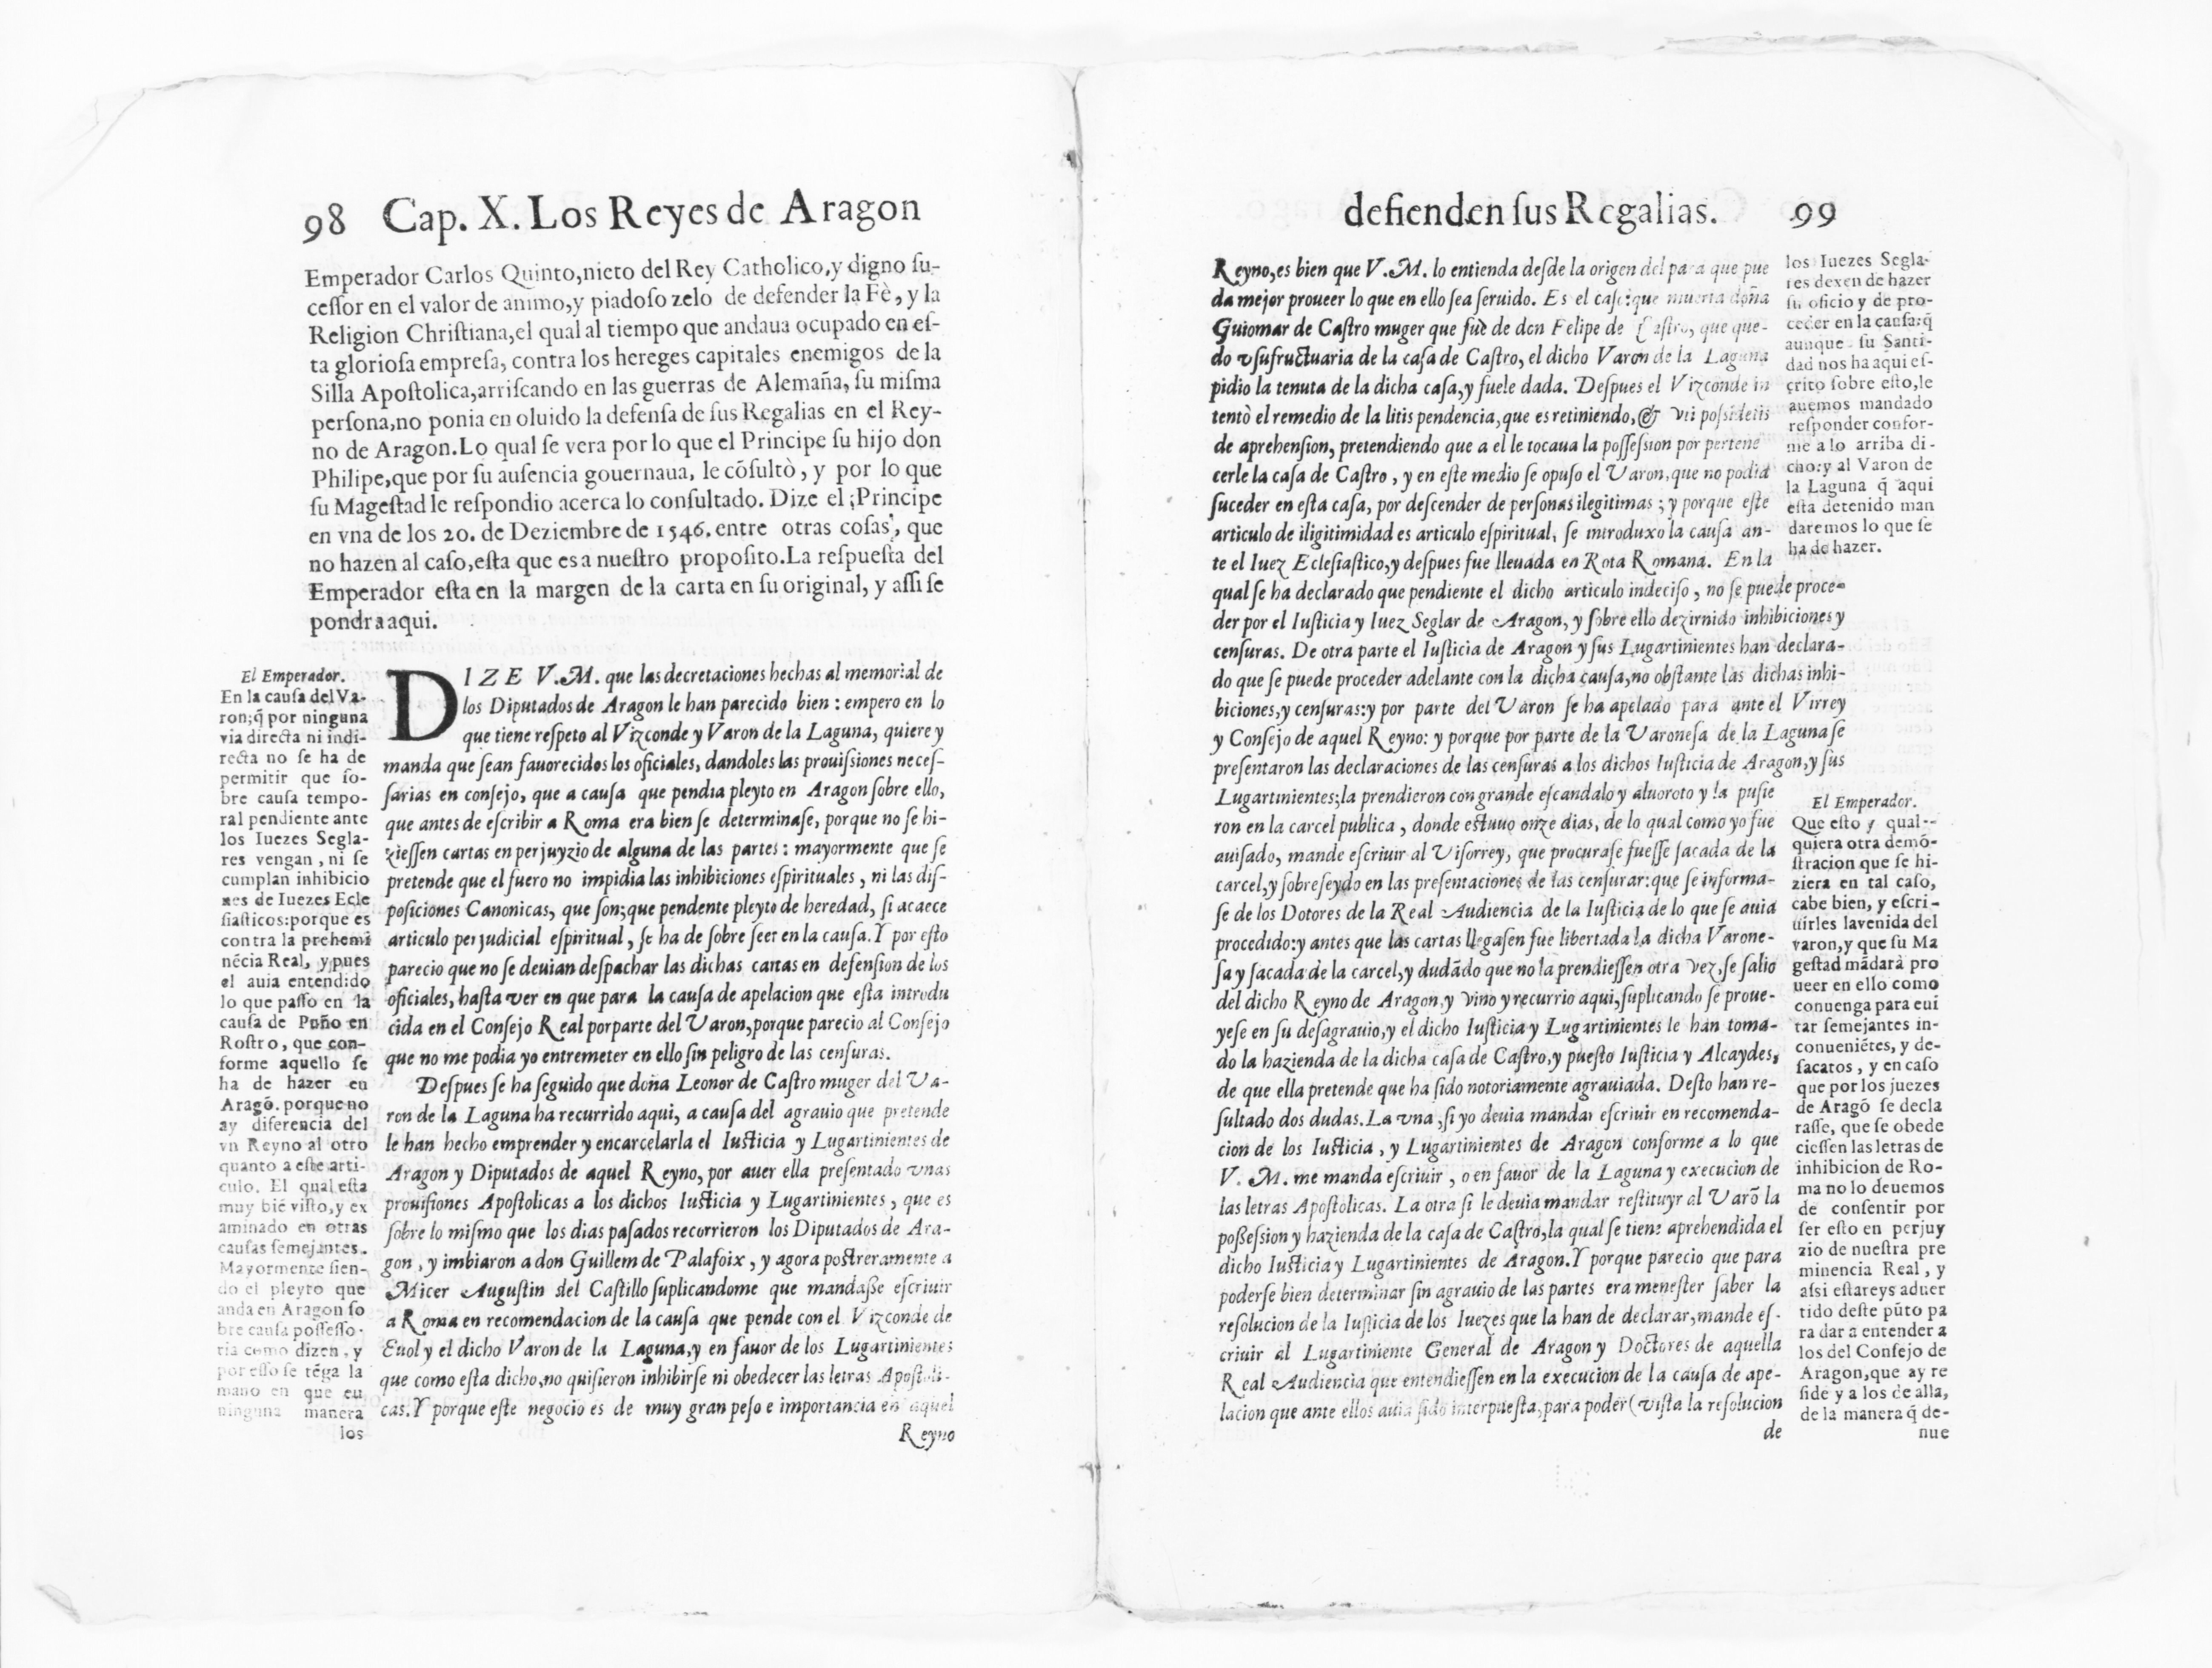 98 Cap. X. Los Reyes de Aragon
Emperador Carlos Quinto,nieto del Rey Catholico,y digno ſu-
ceſſor en el valor de animo,y piadoſo zelo de defender la Fè, y la
Religion Chriſtiana,el qual al tiempo que andaua ocupado en eſ-
ta glorioſa empreſa, contra los hereges capitales enemigos de la
Silla Apoſtolica,arriſcando en las guerras de Alemaña, ſu miſma
perſona,no ponia en oluido la defenſa de ſus Regalias en el Rey-
no de Aragon.Lo qual ſe vera por lo que el Principe ſu hijo don
Philipe,que por ſu auſencia gouernaua, le cõſultò, y por lo que
ſu Mageſtad le reſpondio acerca lo conſultado. Dize el ;Principe
en vna de los 20. de Deziembre de 1546. entre otras coſas, que
no hazen al caſo,eſta que es a nueſtro propoſito.La reſpueſta del
Emperador eſta en la margen de la carta en ſu original, y aſſi ſe
pondra aqui.
El Emperador.
En la cauſa del Va-
ron;q̃ por ninguna
via directa ni indi-
recta no ſe ha de
permitir que ſo-
bre cauſa tempo-
ral pendiente ante
los Iuezes Segla-
res vengan , ni ſe
cumplan inhibicio
nes de Iuezes Ecle
ſiaſticos:porque es
contra la prehemi
nẽcia Real, y pues
el auia entendido
lo que paſſo en la
cauſa de Puño en
Roſtro, que con-
forme aquello ſe
ha de hazer en
Aragõ. porque no
ay diferencia del
vn Reyno al otro
quanto a eſte arti-
culo. El qual eſta
muy biẽ viſto,y ex
aminado en otras
cauſas ſemejantes.
Mayormente ſien-
do el pleyto que
anda en Aragon ſo
bre cauſa poſſeſſo-
ria como dizen , y
por eſſo ſe tẽga la
mano en que en
ninguna manera
los
DIZE V.M. que las decretaciones hechas al memorial de
los Diputados de Aragon le han parecido bien : empero en lo
que tiene reſpeto al Vizconde y Varon de la Laguna, quiere y
manda que ſean fauorecidos los oficiales, dandoles las prouiſsiones neceſ-
ſarias en conſejo, que a cauſa que pendia pleyto en Aragon ſobre ello,
que antes de eſcribir a Roma era bien ſe determinaſe, porque no ſe hi-
zieſſen cartas en perjuyzio de alguna de las partes : mayormente que ſe
pretende que el fuero no impidia las inhibiciones eſpirituales , ni las diſ-
poſiciones Canonicas, que ſon;que pendente pleyto de heredad, ſi acaece
articulo perjudicial eſpiritual , ſe ha de ſobre ſeer en la cauſa.Y por eſto
parecio que no ſe deuian deſpachar las dichas cartas en defenſion de los
oficiales, haſta ver en que para la cauſa de apelacion que eſta introdu
cida en el Conſejo Real por parte del Varon,porque parecio al Conſejo
que no me podia yo entremeter en ello ſin peligro de las cenſuras.
Deſpues ſe ha ſeguido que doña Leonor de Caſtro muger del Va-
ron de la Laguna ha recurrido aqui, a cauſa del agrauio que pretende
le han hecho emprender y encarcelarla el Iuſticia y Lugartinientes de
Aragon y Diputados de aquel Reyno, por auer ella preſentado vnas
prouiſiones Apoſtolicas a los dichos Iuſticia y Lugartinientes , que es
ſobre lo miſmo que los dias paſados recorrieron los Diputados de Ara-
gon , y imbiaron a don Guillem de Palafoix , y agora poſtreramente a
Micer Auguſtin del Caſtillo ſuplicandome que mandaſſe eſcriuir
a Roma en recomendacion de la cauſa que pende con el Vizconde de
Euol y el dicho Varon de la Laguna,y en fauor de los Lugartinientes
que como eſta dicho,no quiſieron inhibirſe ni obedecer las letras Apoſtoli-
cas.Y porque eſte negocio es de muy gran peſo e importancia en aquel
Reyno
defienden ſus Regalias. 99
Reyno,es bien que V.M. lo entienda deſde la origen del para que pue
da mejor proueer lo que en ello ſea ſeruido. Es el caſo:que muerta doña
Guiomar de Caſtro muger que fuè de don Felipe de Caſtro, que que-
do vſufructuaria de la caſa de Caſtro, el dicho Varon de la Laguna
pidio la tenuta de la dicha caſa,y fuele dada. Deſpues el Vizconde in
tentò el remedio de la litis pendencia,que es retiniendo,& vti poſsidetis
de aprehenſion, pretendiendo que a el le tocaua la poſſeſsion por pertene
cerle la caſa de Caſtro , y en eſte medio ſe opuſo el Varon,que no podia
ſuceder en eſta caſa, por deſcender de perſonas ilegitimas ; y porque eſte
articulo de iligitimidad es articulo eſpiritual, ſe introduxo la cauſa an-
te el Iuez Ecleſiaſtico,y deſpues fue lleuada en Rota Romana. En la
qual ſe ha declarado que pendiente el dicho articulo indeciſo , no ſe puede proce-
der por el Iuſticia y Iuez Seglar de Aragon, y ſobre ello dezirnido inhibiciones y
cenſuras. De otra parte el Iuſticia de Aragon y ſus Lugartinientes han declara-
do que ſe puede proceder adelante con la dicha cauſa,no obſtante las dichas inhi-
biciones,y cenſuras:y por parte del Varon ſe ha apelado para ante el Virrey
y Conſejo de aquel Reyno: y porque por parte de la Varoneſa de la Laguna ſe
preſentaron las declaraciones de las cenſuras a los dichos Iuſticia de Aragon,y ſus
Lugartinientes;la prendieron con grande eſcandalo y aluoroto y la puſie
ron en la carcel publica , donde eſtuuo onze dias, de lo qual como yo fue
auiſado, mande eſcriuir al Viſorrey, que procuraſe fueſſe ſacada de la
carcel,y ſobreſeydo en las preſentaciones de las cenſurar:que ſe informa-
ſe de los Dotores de la Real Audiencia de la Iuſticia de lo que ſe auia
procedido:y antes que las cartas llegaſen fue libertada la dicha Varone-
ſa y ſacada de la carcel,y dudãdo que no la prendieſſen otra vez,ſe ſalio
del dicho Reyno de Aragon,y vino y recurrio aqui,ſuplicando ſe proue-
yeſe en ſu deſagrauio,y el dicho Iuſticia y Lugartinientes le han toma-
do la hazienda de la dicha caſa de Caſtro,y pueſto Iuſticia y Alcaydes,
de que ella pretende que ha ſido notoriamente agrauiada. Deſto han re-
ſultado dos dudas.La vna ,ſi yo deuia mandar eſcriuir en recomenda-
cion de los Iuſticia , y Lugartinientes de Aragon conforme a lo que
V. M. me manda eſcriuir , o en fauor de la Laguna y execucion de
las letras Apoſtolicas. La otra ſi le deuia mandar reſtituyr al Varõ la
poſſeſsion y hazienda de la caſa de Caſtro,la qual ſe tiene aprehendida el
dicho Iuſticia y Lugartinientes de Aragon.Y porque parecio que para
poderſe bien determinar ſin agrauio de las partes era meneſter ſaber la
reſolucion de la Iuſticia de los Iuezes que la han de declarar,mande eſ-
criuir al Lugartiniente General de Aragon y Doctores de aquella
Real Audiencia que entendieſſen en la execucion de la cauſa de ape-
lacion que ante ellos auia ſido interpueſta,para poder(viſta la reſolucion
de
los Iuezes Segla-
res dexen de hazer
ſu oficio y de pro-
ceder en la cauſa:q̃
aunque ſu Santi-
dad nos ha aqui eſ-
crito ſobre eſto,le
auemos mandado
reſponder confor-
me a lo arriba di-
cho:y al Varon de
la Laguna q̃ aqui
eſta detenido man
daremos lo que ſe
ha de hazer.
El Emperador.
Que eſto y qual-
quiera otra demõ-
ſtracion que ſe hi-
ziera en tal caſo,
cabe bien, y eſcri-
uirles la venida del
varon,y que ſu Ma
geſtad mãdarà pro
ueer en ello como
conuenga para eui
tar ſemejantes in-
conueniẽtes, y de-
ſacatos , y en caſo
que por los juezes
de Aragõ ſe decla
raſſe, que ſe obede
cieſſen las letras de
inhibicion de Ro-
ma no lo deuemos
de conſentir por
ſer eſto en perjuy
zio de nueſtra pre
minencia Real , y
aſsi eſtareys aduer
tido deſte pũto pa
ra dar a entender a
los del Conſejo de
Aragon,que ay re
ſide y a los de alla,
de la manera q̃ de-
nue